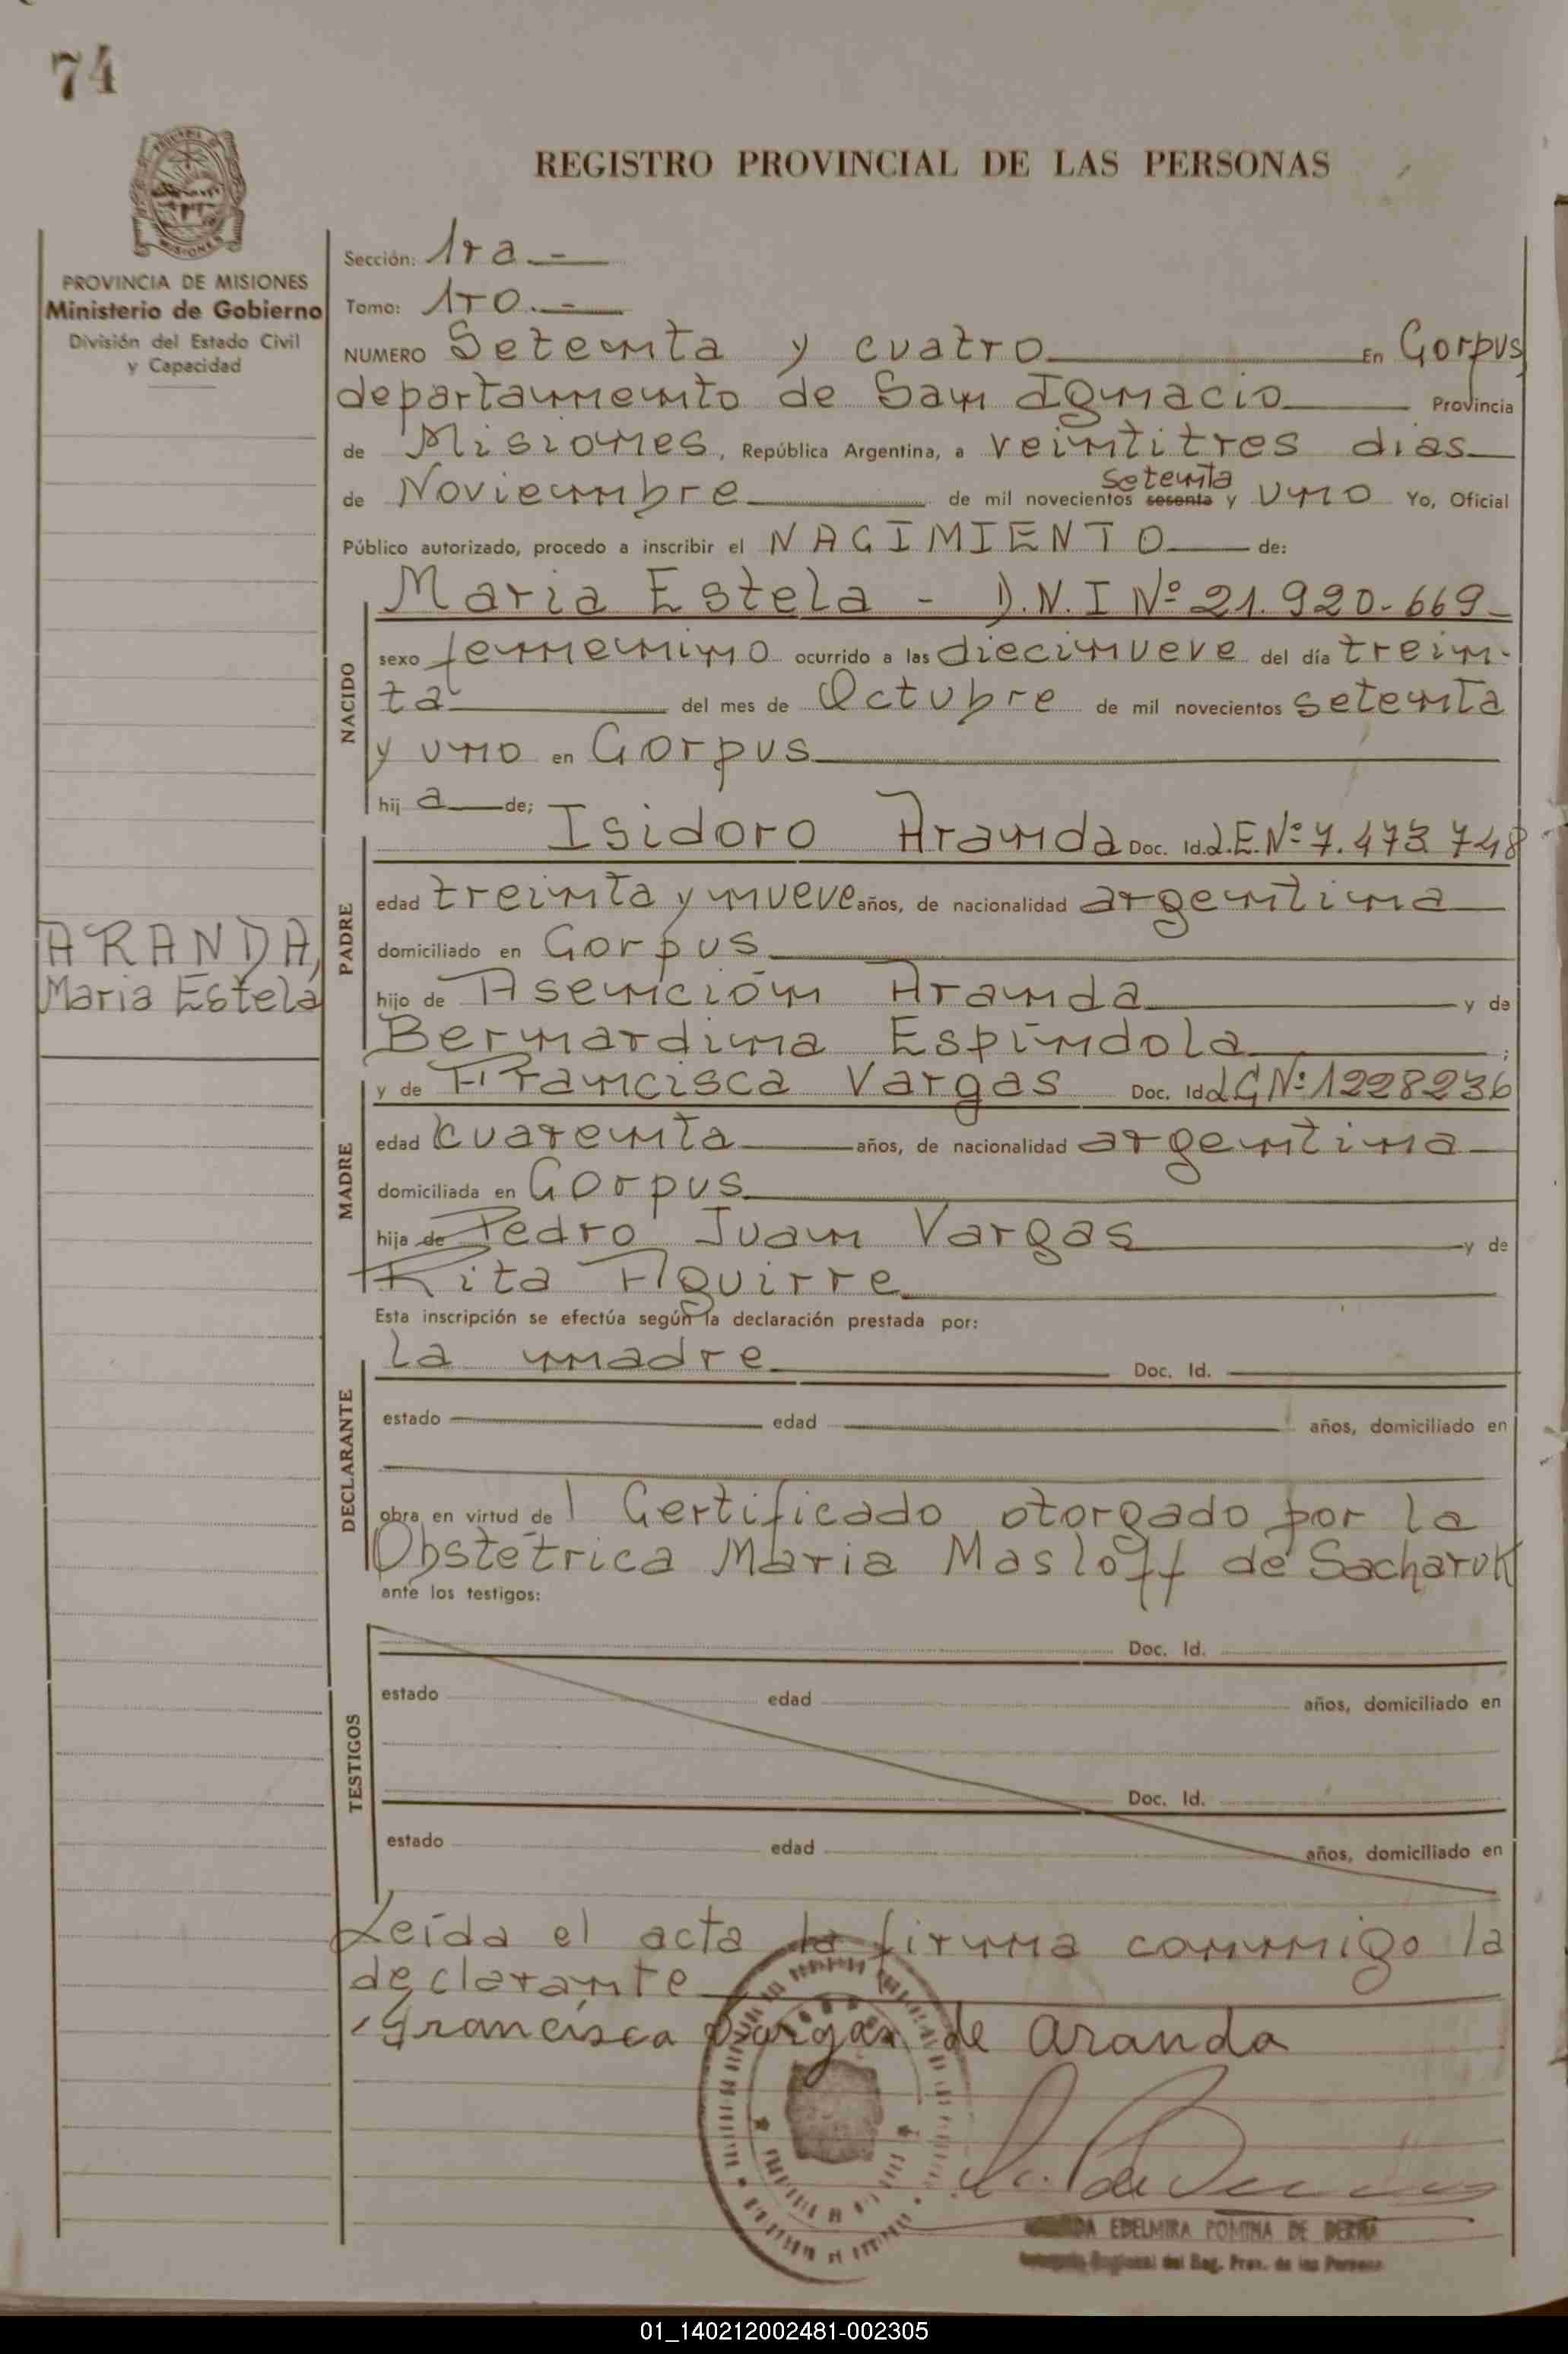 74
REGISTRO PROVINCIAL DE LAS PERSONAS
PROVINCIA DE MISIONES
Ministerio de Gobierno
División del Estado Civil
y Capacidad
Sección: 1ra.-
Tomo: 1ro.-
NUMERO Setenta y cuatro En Corpus
departamento de San Ignacio Provincia
de Misiones, República Argentina, a veintitres dias
setenta
de Noviembre de mil novecientos sesenta y uno Yo, Oficial
Público autorizado, procedo a inscribir el NACIMIENTO de:
Maria Estela - D.N.I Nº 21.920-669-
NACIDO
sexo femenino ocurrido a las diecinueve del día trein-
ta del mes de Octubre de mil novecientos setenta
y uno en Corpus
hij a de;
Isidoro Aranda Doc. Id. L.E.Nº 7.473 748
PADRE
edad treinta y nueve años, de nacionalidad argentina
domiciliado en Corpus
ARANDA,
Maria Estela
hijo de Asención Aranda y de
Bernardina Espíndola ;
y de Francisca Vargas Doc. Id LC Nº 1228236
MADRE
edad cuarenta años, de nacionalidad argentina
domiciliada en Corpus
hija de Pedro Juan Vargas y de
Rita Aguirre
Esta inscripción se efectúa según la declaración prestada por:
la madre Doc. Id.
DECLARANTE
estado edad años, domiciliado en
obra en virtud de l Certificado otorgado por la
Obstetrica Maria Masloff de Sacharuk
ante los testigos:
TESTIGOS
Doc. Id.
estado edad años, domiciliado en
Doc. Id.
estado edad años, domiciliado en
Leída el acta la firma conmigo la
declarante
Francisca Vargas de Aranda
EDELMIRA POMINA DE
Regional del Reg. Prov. de las Persona
01_140212002481-002305